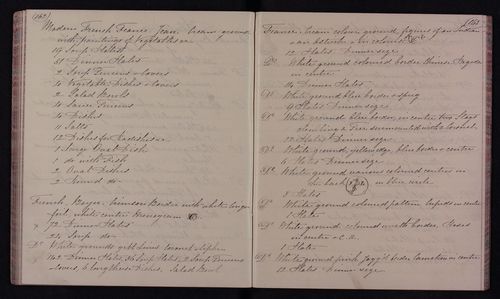 (162)
Modern French Fraaie, Jean. Cream ground
with paintings of Vegetables &c
19 Soup Plates
81 Dinner Plates
2 Soup Tureens & covers
4 Vegetable Dishes & covers
2 Salad Bowls
4 Sauce Tureens
4 Dishes
11 Salts
12 Dishes for Radishes &c
1 large Oval Dish
1 do with Fish
2 Oval Dishes
2 Round do
French, Crimson Border with white
white centre Monogram
72 Dinner Plates
24 Soup do
Do White ground gilt band
142 Dinner Plates, 36 Soup Plates, 2 Soup Tureens
covers, 6 long these Dishes, Salad Bowl
163
France. Cream colour ground, figures of an Indian
12 Plates Dinner size
Do White ground coloured border Chinese
in centre
24 Dinner Plates
Do White ground blue border & sprig
9 Plates Dinner size
Do White ground blue border, in centre two Stags
climbing a Tree surmounted with a Coronet
22 Plates Dinner size
Do White ground, yellow edge blue border & centre
6 Plates Dinner size
Do White ground various coloured centres on
the back in blue circle
8 Plates
Do White ground coloured pattern in centre
1 Plate
Do White ground coloured with border, Roses
in centre & C.A.
1 Plate
Do White ground pink border Carnation in centre
12 Plates Dinner size